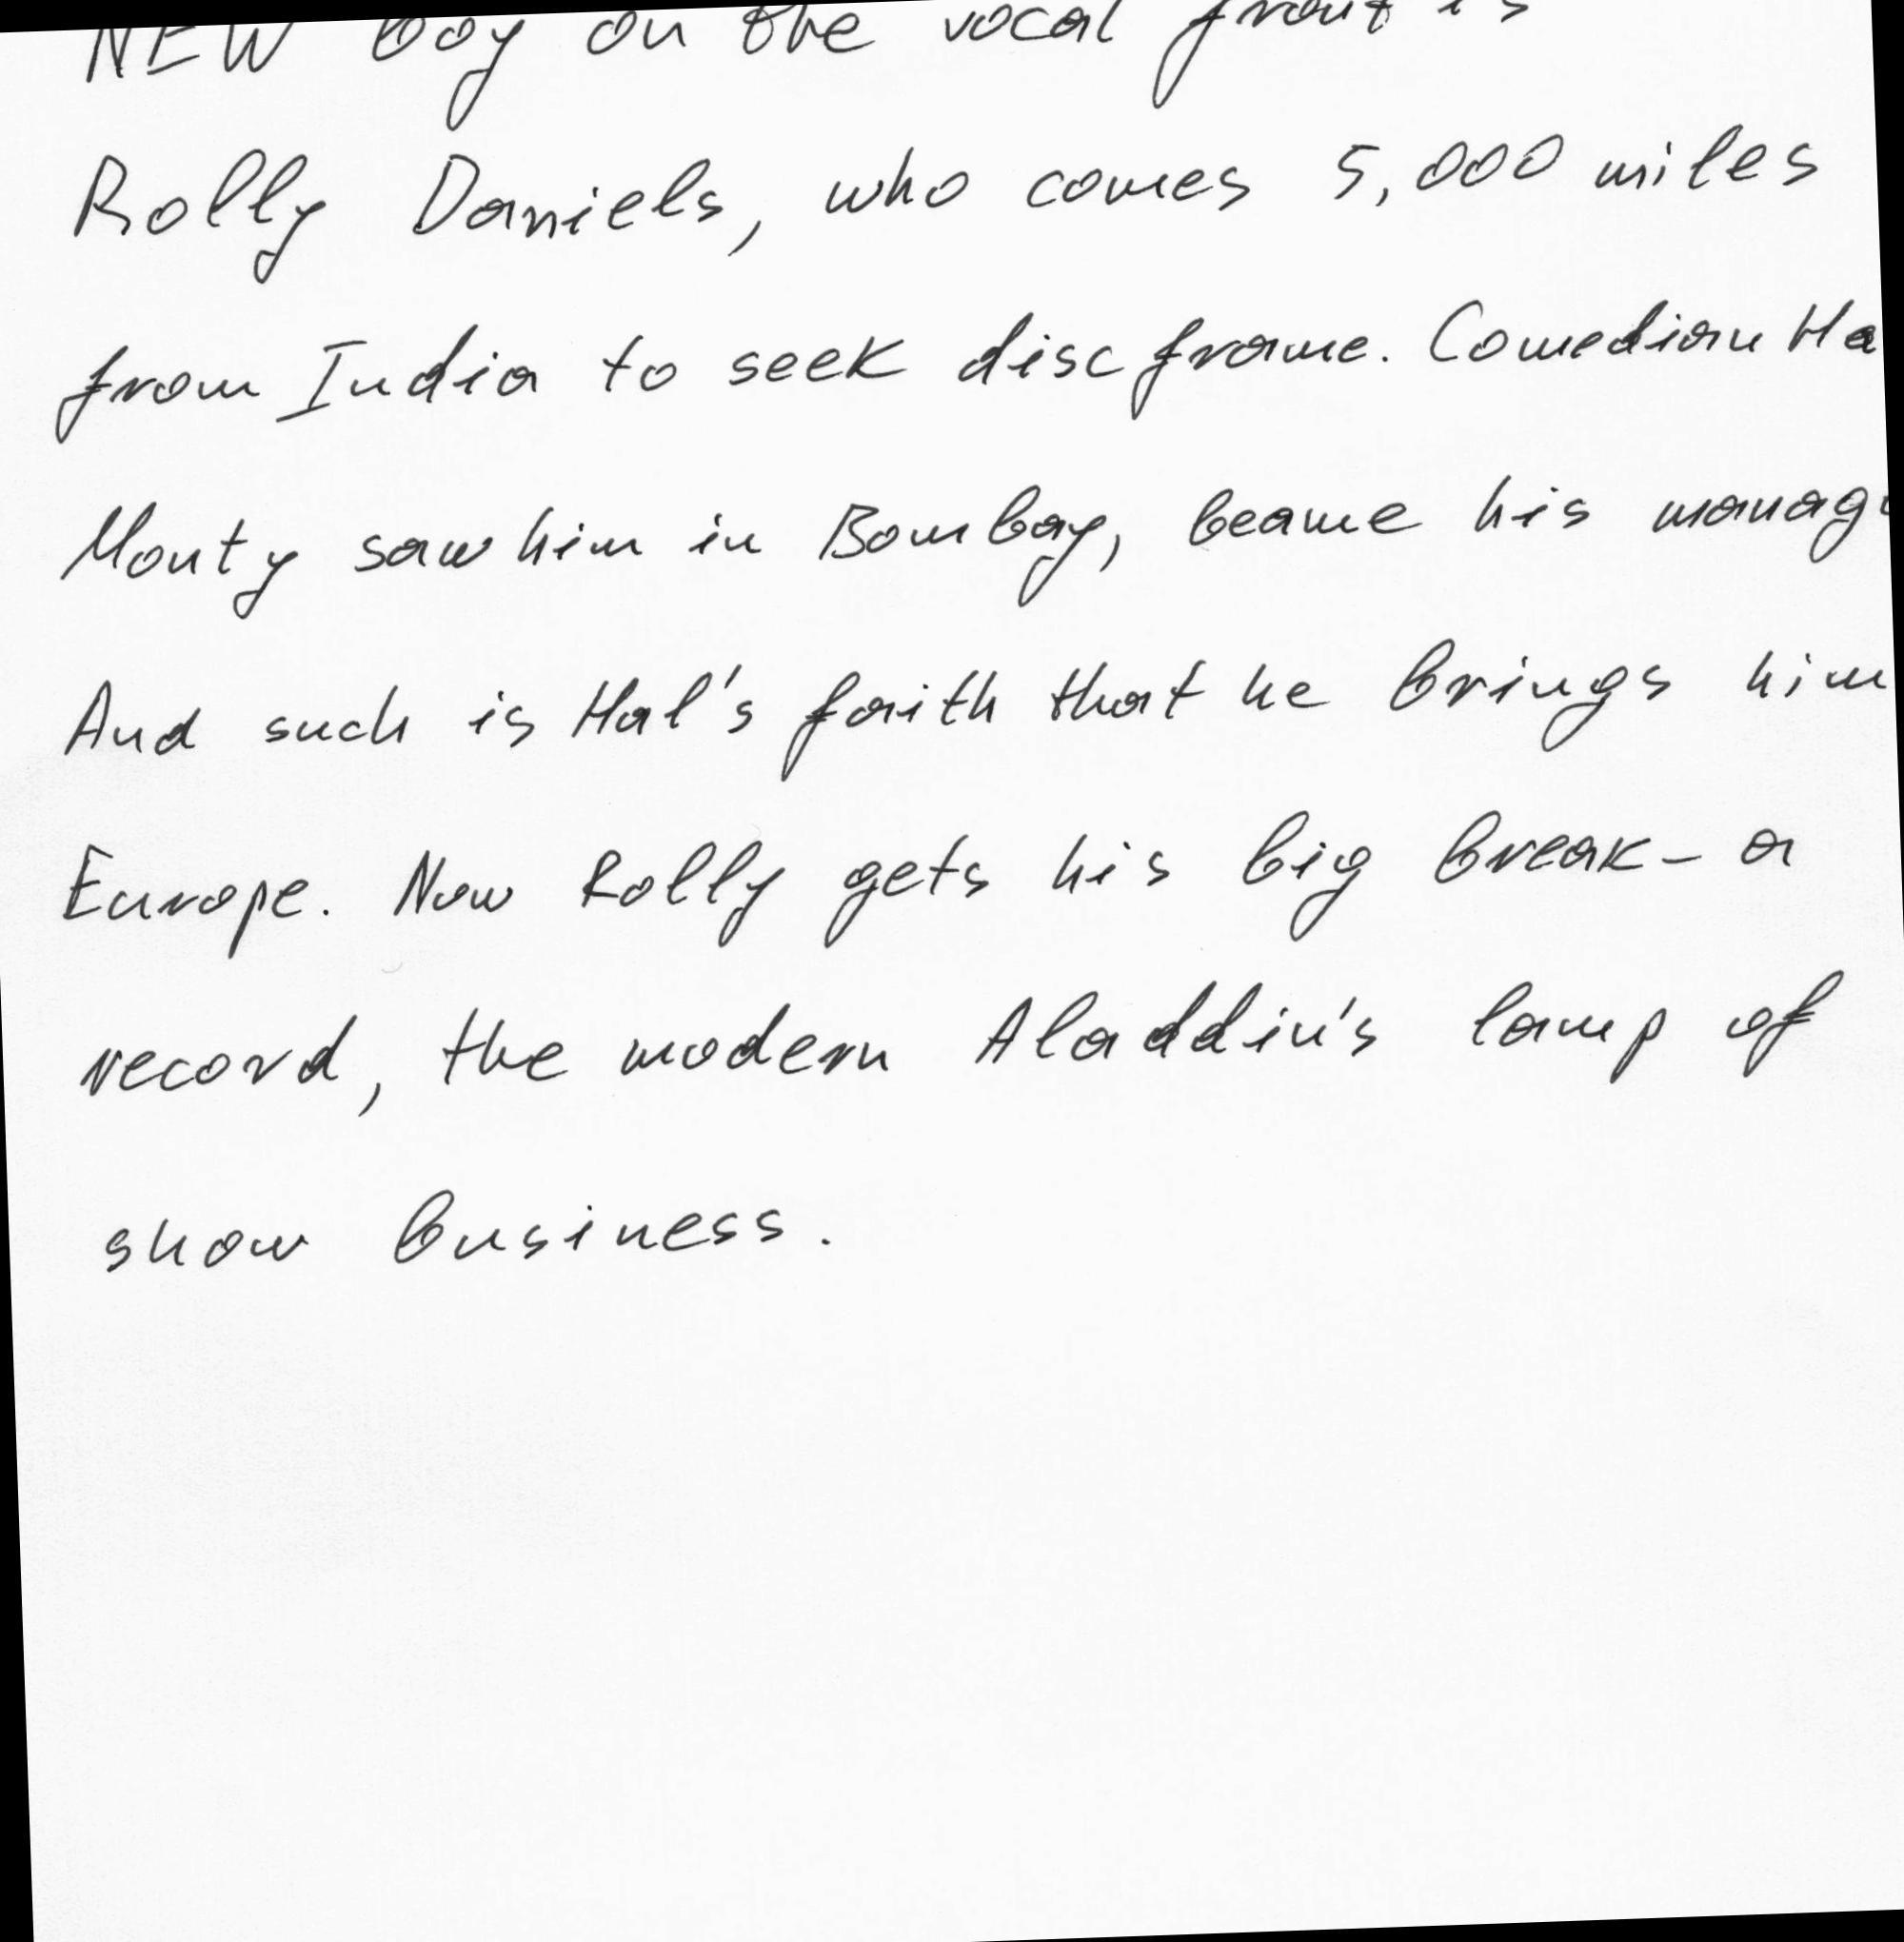 NEW boy on the vocal front is
Rolly Daniels, who comes 5,000 miles
from India to seek disc frame. Comedian Ha
Monty saw him in Bombay, beame his manag
And such is Hal's faith that he brings him
Europe. Now Rolly gets his big break - a
record, the modern Aladdin's lamp of
show business.